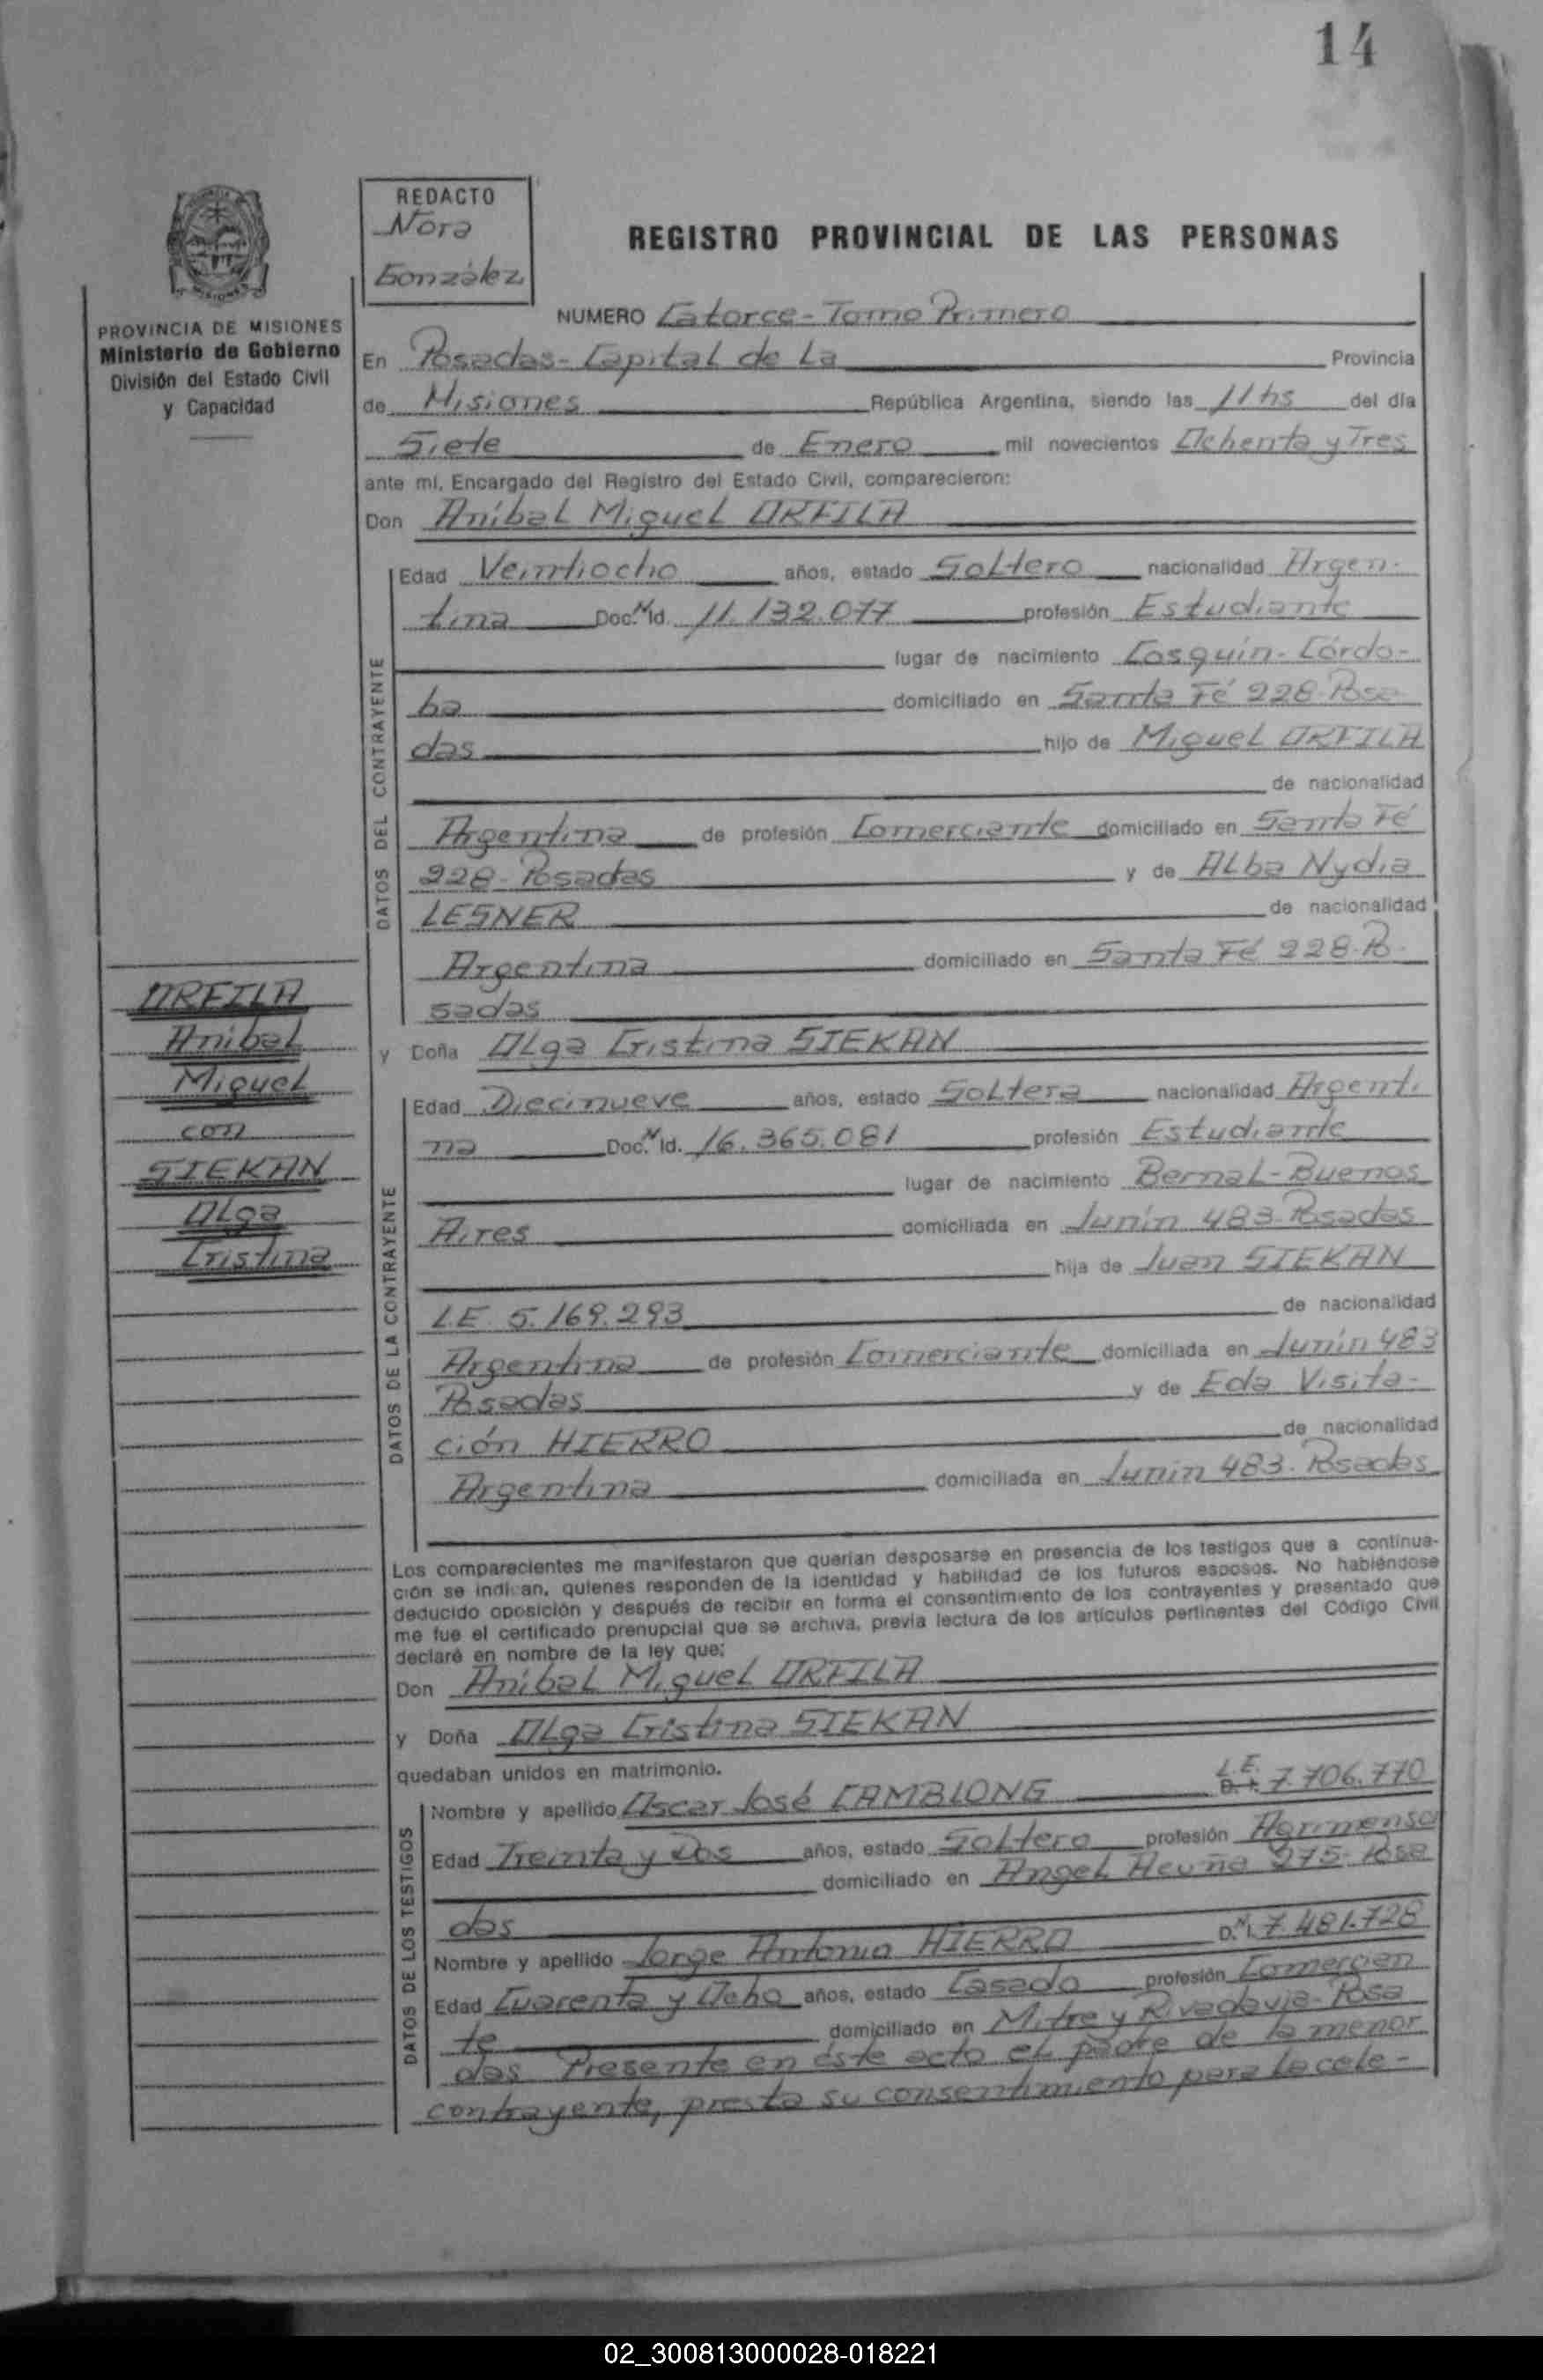 14
REDACTO
Nora
González
REGISTRO PROVINCIAL DE LAS PERSONAS
PROVINCIA DE MISIONES
Ministerio de Gobierno
División del Estado Civil
y Capacidad
NUMERO Catorce - Tomo Primero
En Posadas - Capital de La Provincia
de Misiones República Argentina, siendo las 11 hs del día
Siete de Enero mil novecientos Ochenta y Tres
ante mí, Encargado del Registro del Estado Civil, comparecieron:
Don Aníbal Miguel ORFILA
DATOS DEL CONTRAYENTE
Edad Veintiocho años, estado Soltero nacionalidad Argen-
tina Doc. N. Id. 11.132.077 profesión Estudiante
lugar de nacimiento Cosquín - Córdo-
ba domiciliado en Santa Fé 228-Posa
das hijo de Miguel ORFILA
de nacionalidad
Argentina de profesión Comerciante domiciliado en Santa Fé
228 - Posadas y de Alba Nydia
LESNER de nacionalidad
Argentina domiciliado en Santa Fé 228-Po-
sadas
ORFILA
Anibal
Miguel
con
SIEKAN
Olga
Cristina
y Doña Olga Cristina SIEKAN
DATOS DE LA CONTRAYENTE
Edad Diecinueve años, estado Soltera nacionalidad Argenti
na Doc. N. Id. 16.365.081 profesión Estudiante
lugar de nacimiento Bernal - Buenos
Aires domiciliada en Junín 483-Posadas
hija de Juan SIEKAN
L.E. 5.169.293 de nacionalidad
Argentina de profesión Comerciante domiciliada en Junín 483
Posadas y de Eda Visita-
ción HIERRO de nacionalidad
Argentina domiciliada en Junín 483. Posadas
Los comparecientes me manifestaron que querían desposarse en presencia de los testigos que a continua-
ción se indican, quienes responden de la identidad y habilidad de los futuros esposos. No habiéndose
deducido oposición y después de recibir en forma el consentimiento de los contrayentes y presentado que
me fue el certificado prenupcial que se archiva, previa lectura de los artículos pertinentes del Código Civil
declaré en nombre de la ley que:
Don Aníbal Miguel ORFILA
y Doña Olga Cristina SIEKAN
quedaban unidos en matrimonio.
DATOS DE LOS TESTIGOS
Nombre y apellido Oscar José CAMBLONG L.E. 7.706.770
Edad Treinta y Dos años, estado Soltero profesión Agrimensor
domiciliado en Angel Acuña 275-Posa
das
Nombre y apellido Jorge Antonio HIERRO D.N.I. 7.481.728
Edad Cuarenta y Ocho años, estado Casado profesión Comercian
te domiciliado en Mitre y Rivadavia-Posa
das Presente en éste acto el padre de la menor
contrayente, presta su consentimiento para la cele-
02_300813000028-018221